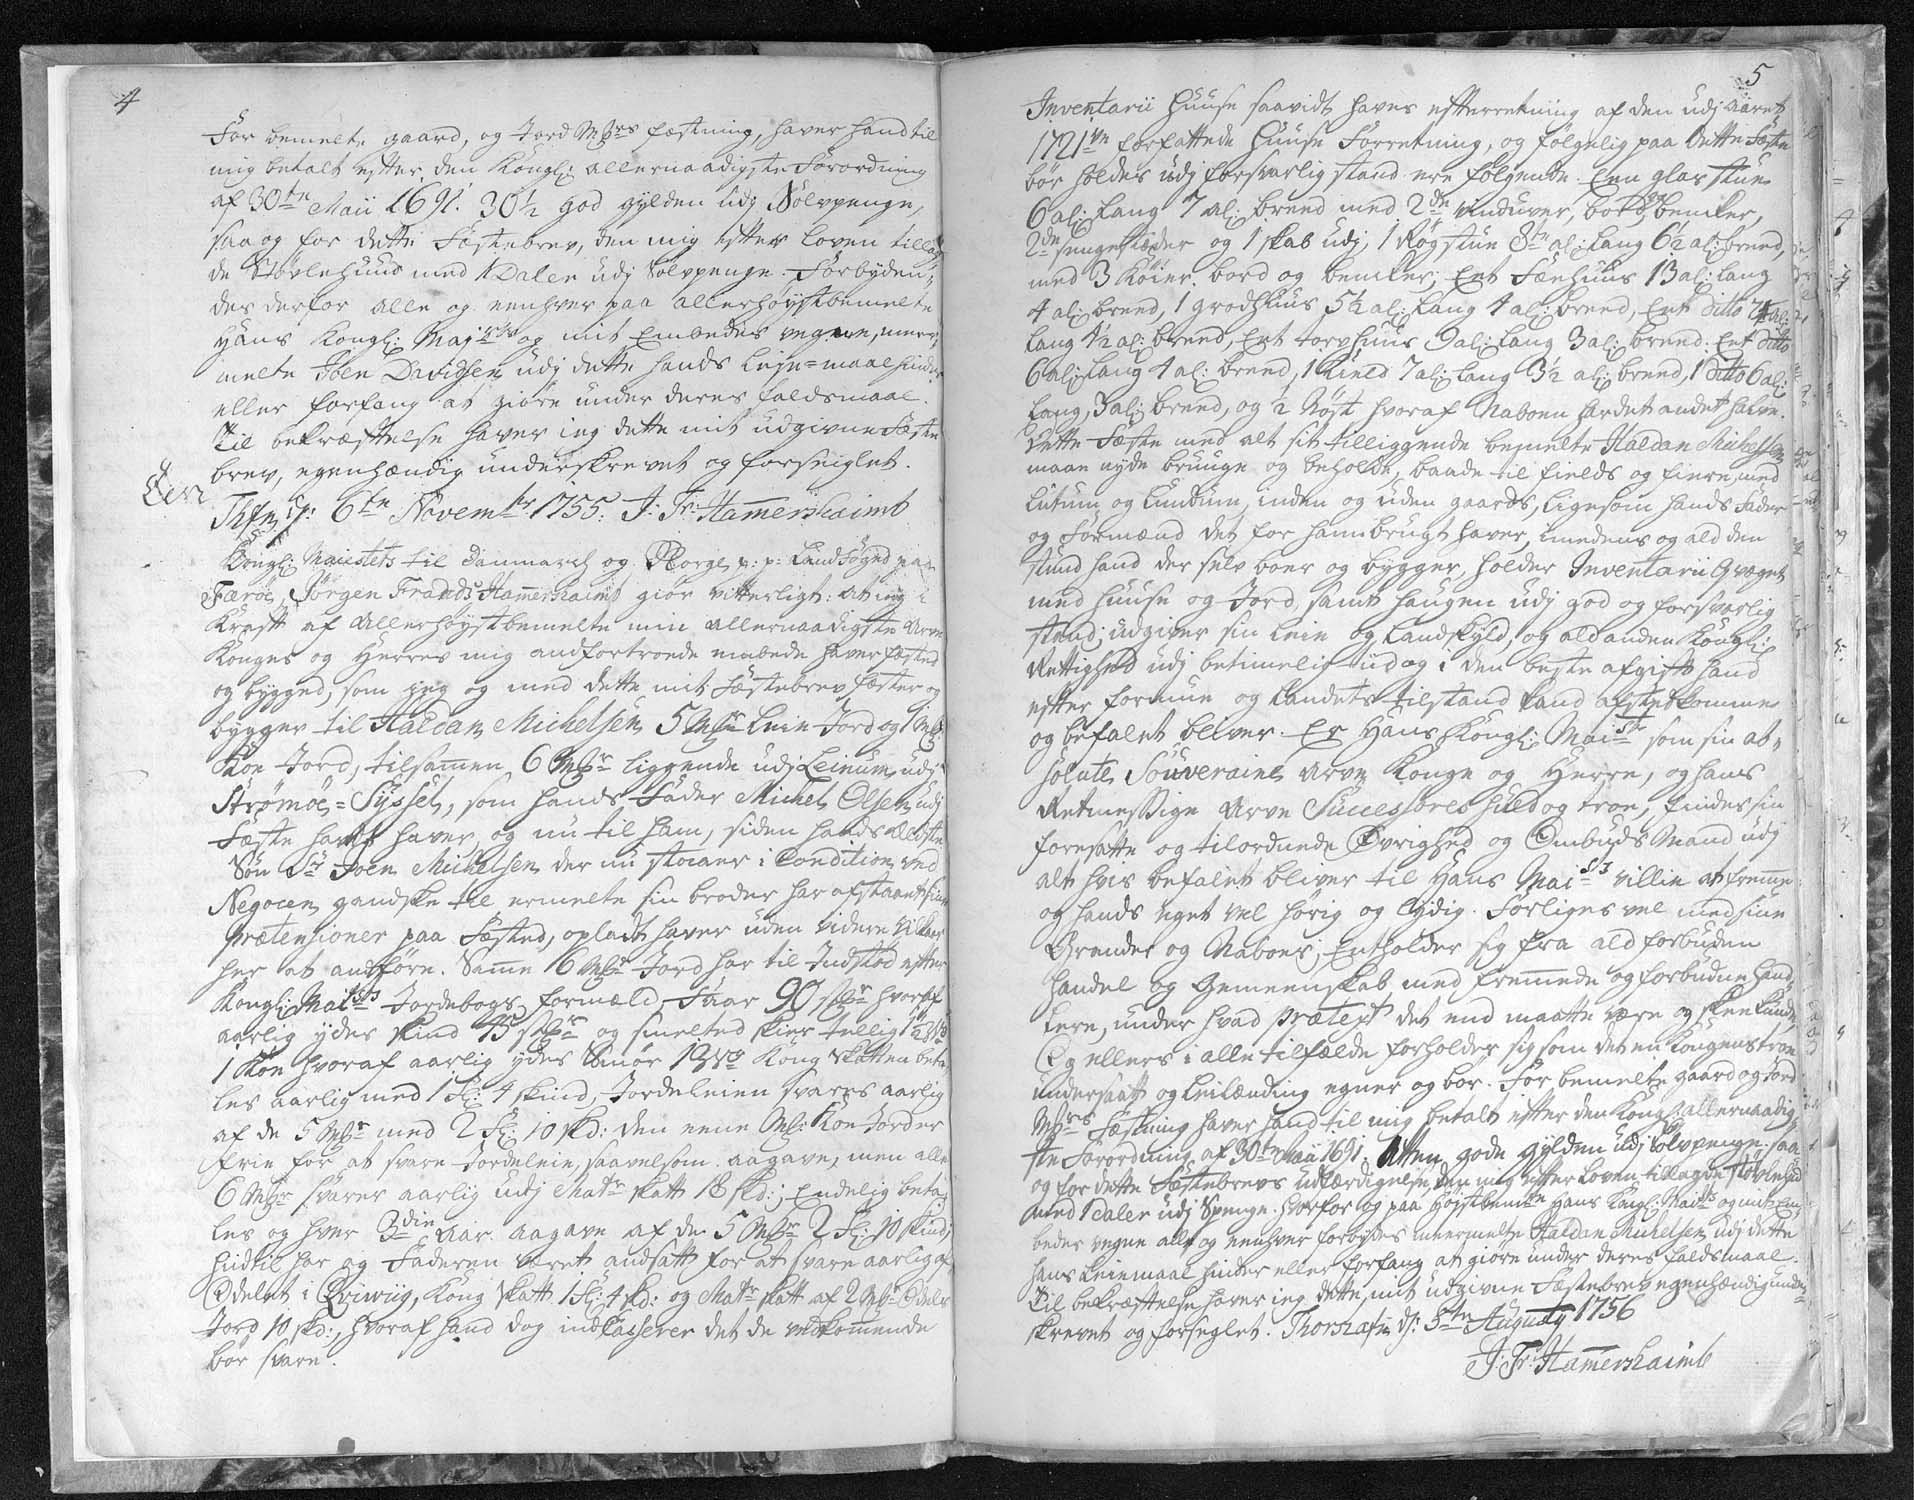 4
For bemelte gaard, og Jord Mkrs fæstning, haver hand til
mig betalt efter den Kongl: allernaadigste Forordning
af 30te Maii 1691. 30½ god gylden udj Sølvpenge,
saa og for dette Fæstebrev, den mig efter Loven tillag-
de Støvlehuud med 1 Daler udj Sølvpenge. Forbyden-
des derfor alle og eenhver paa allerhøystbemelte
Hans Kongl: Majts og mit Embedes vegne, meer-
melte Joen Davidsen udj dette hands Leje-maal hinder
eller forfang at giøre under deres faldsmaal.
Til bekræftelse haver jeg dette mit udgivne Fæste
brev, egenhændig underskrevet og forseiglet.
Thfn d: 6te Novembr 1755. J: Fr: Hamershaimb
Kongl: Maiestets til Danmarck og Norge p: p: Landfoged paa
Færöe, Jörgen Frands Hamershaimb giør vitterligt: at jeg i
Kraft af Allerhøystbemelte min allernaadigste Arve
Konges og Herres mig anfortroede embede haver fæsted
og bygged, som jeg og med dette mit Fæstebrev fæster og
bygger til Haldan Michelsen 5 Mkr Leie Jord og 1 Mk:
Koe Jord, tilsamen 6 Mkr liggende udj Leinum, udj
Strømöe-Syssel, som hands Fader Michel Olsen udj
Fæste haft haver, og nu til ham, siden hands ældste
Søn Sr Joen Michelsen der nu staaer i Condition ved
Negocen gandske til ermelte sin broder har afstaaet sine
prætensioner paa Fæsted, opladt haver uden videre Vilkaar
her at andføre. Same 6 Mkr Jord har til Indstød efter
Kongl: Maits Jordebogs formæld Faar 90 stkr hvoraf
aarlig ydes skind 45 stkr og smelted skier tællig
1 Koe hvoraf aarlig ydes Smør Kong Skatten beta-
les aarlig med 1 Fl: 4 skind, Jordeleien svares aarlig
af de 5 Mkr med 2 Fl: 10 skd: den eene Mk: Koe Jord er
frie for at svare Jordeleie, saavelsom aagave, men alle
6 Mkr svarer aarlig udj Matr skatt 18 skd:; Endelig beta-
les og hver 3die Aar aagave af de 5 Mkr 2 Fl: 10 skind;
hidtil har og Faderen været andsatt for at svare aarlig af
Odelet i Qviviig, Kong Skatt 1 Fl: 4 skd: og Matr skatt af 2 Mkr Odels
Jord 10 skd:, hvoraf hand dog indcasserer det de vedkommende
bør svare.
5
Inventarii Huuse saavidt haves efterretning af den udj aaret
1721 ve forfattede Huuse Forretning, og følgelig paa dette Fæste
bør holdes udj forsvarlig stand ere følgende. Een glas stue
6 al: lang 7 al: breed med 2de vinduver, bord, bencker,
2de sengestæder og 1 skab udj, 1 Røgstue 8te al: lang 6½ al: breed,
med 3 Køier, bord og bencker; Eet Fæehuus 13 al: lang
4 al: breed, 1 grodhuus 5½ al: lang 4 al: breed, Eet ditto 7 al:
lang 4½ al: breed, Eet torvhuus 9 al: lang 3 al: breed. Eet ditto
6 al: lang 4 al: breed, 1 Kield 7 al: lang 3½ al: breed, 1 ditto 6 al:
lang, 3 al: breed, og ½ Nøst hvoraf Naboen har det andet halve.
Dette Fæste med alt sit tilliggende bemelte Haldan Michelsen
maae nyde bruuge og beholde, baade til fields og fiære, med
Lutum og Lundum, inden og uden gaards, ligesom hands Fader
og Formænd det for ham brugt haver, imedens og ald den
stund hand der selv boer og bygger, holder Inventarii Qvæget
med huuse og Jord, samt haugen udj god og forsvarlig
stand; udgiver sin leie og Landskyld, og ald anden Kongl:
Rettighed udj betimelig tid og i den beste afgift hand
efter formue og Landets tilstand kand afstedkomme
og befalet bliver. Er Hans Kongl: Maist: som sin ab-
solute Souveraine Arve Konge og Herre, og hans
Retmessige Arve Successores huld og troe, findes sin
foresatte og tilordnede Øvrighed og Ombuds Mand udj
alt hvis befalet bliver til Hans Maists villie at fremme
og hands eget vel hørig og lydig. Forliges vel med sine
Grander og Naboer; Entholder sig fra ald forbuden
handel og Gemeenskab med fremmede og forbudne hand-
lere, under hvad prætext det end maatte være og skee kunde,
Og ellers i alle tilfælde forholder sig som det en Kongens troe
undersaatt og Leilænding egner og bør. For bemelte gaard og Jord
Mkrs Fæstning haver hand til mig betalt efter den Kongl: allernaadig-
ste Forordning af 30te Maii 1691. Otten gode gylden udj Sølvpenge, saa
og for dette Fæstebrevs udfærdigelse, den mig efter Loven tillagde Støvlehud
med 1 daler udj Spenge. Hvorfor og paa Høystbemte Hans Kongl: Maits og mit Em-
bedes vegne alle og eenhver forbydes meermelte Haldan Michelsen udj dette
hans Leiemaal hinder eller forfang at giøre under deres faldsmaal.
Til bekræftelse haver jeg dette mit udgivne Fæstebrev egenhændig under-
skrevet og forseglet. Thorshafn d: 5te Augusty 1756
J: Fr: Hamershaimb